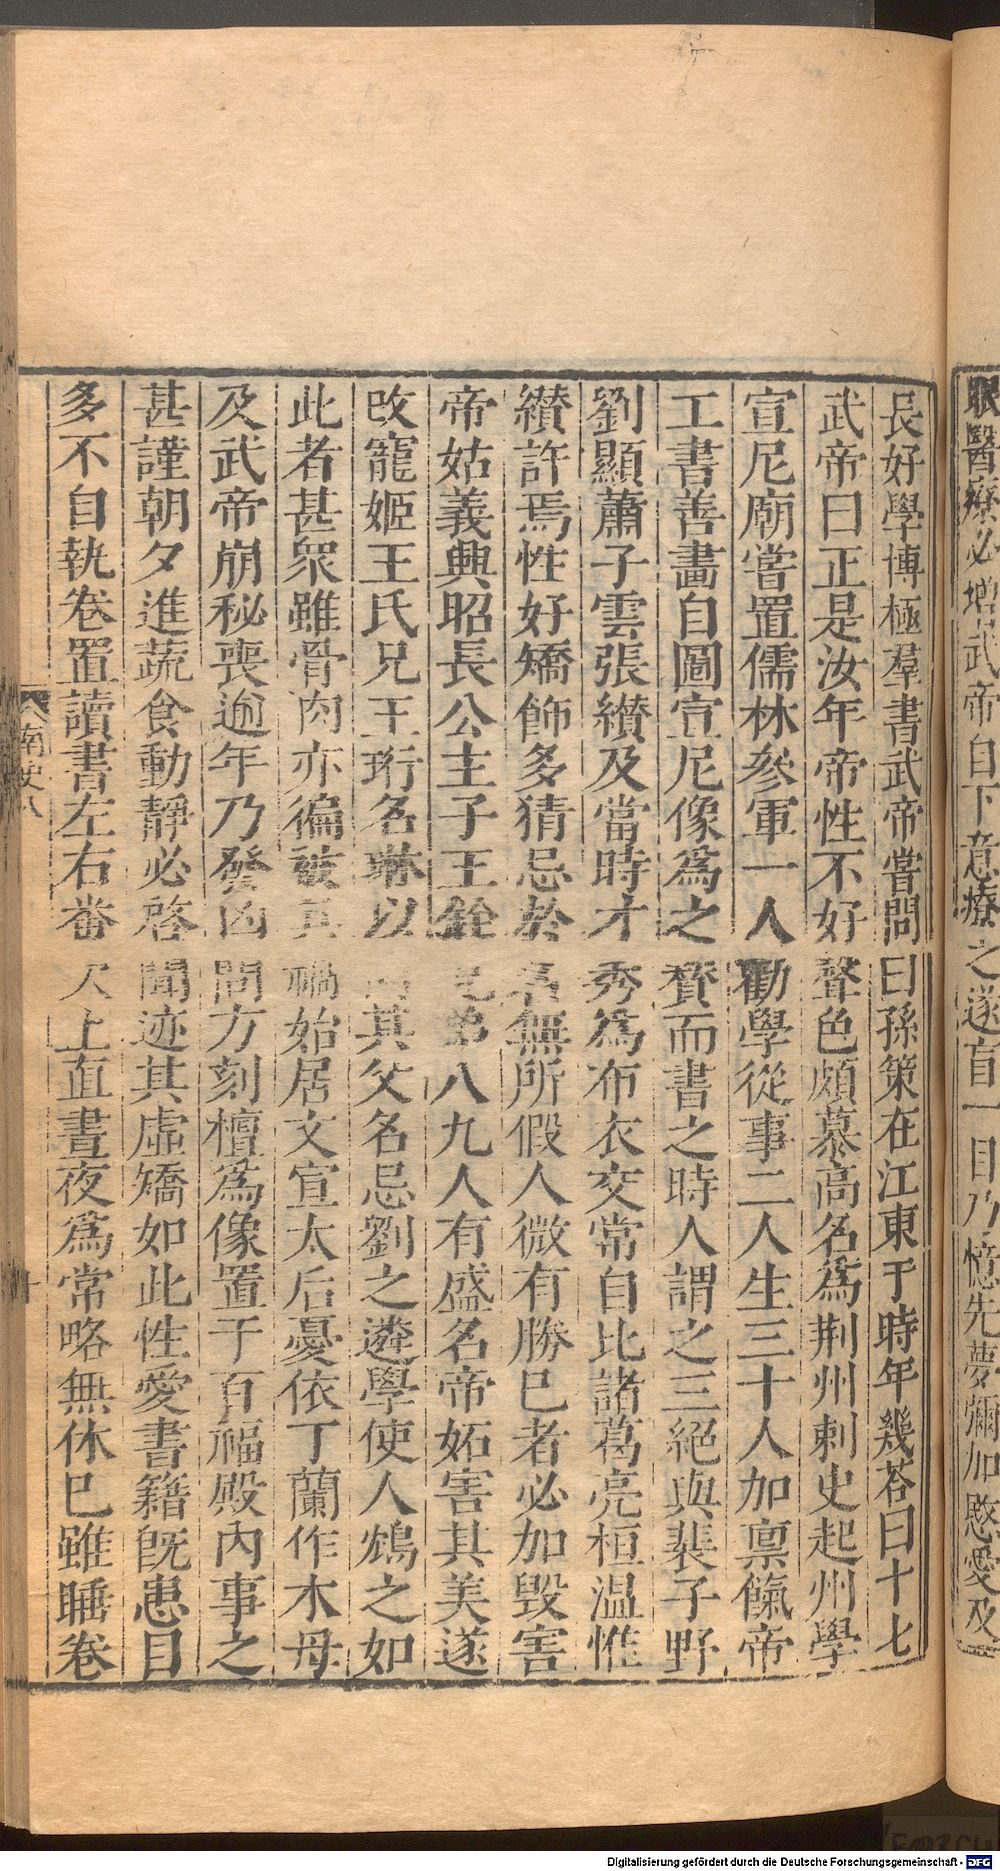 眼醫療必增武帝自下意療之遂盲一目乃憶先夢彌加愍愛及
長好學博極羣書武帝嘗問曰孫策在江東于時年幾荅曰十七
武帝曰正是汝年帝性不好聲色頗慕高名爲荆州刺史起州學
宣尼廟嘗置儒林參軍一人勸學從事二人生三十人加禀餼帝
工書善畵自圖宣尼像爲之賛而書之時人謂之三絕與裴子野
劉顯蕭子雲張纘及當時才秀爲布衣交常自比諸葛亮桓温惟
纘許焉性好矯飾多猜忌於名無所假人微有勝巳者必加毀害
帝姑義興昭長公主子王銓兄弟八九人有盛名帝妬害其美遂
改寵姬王氏兄王珩名琳以同其父名忌劉之遴學使人鴆之如
此者甚眾雖骨肉亦徧被其禍始居文宣太后憂依丁蘭作木母
及武帝崩秘喪逾年乃發凶問方刻檀爲像置于百福殿內事之
甚謹朝夕進蔬食動靜必啓聞迹其虛矯如此性愛書籍旣患目
多不自執卷置讀書左右番次上直晝夜爲常略無休巳雖睡卷
南史八
十
Digitalisierung gefördert durch die Deutsche Forschungsgemeinschaft - DFG